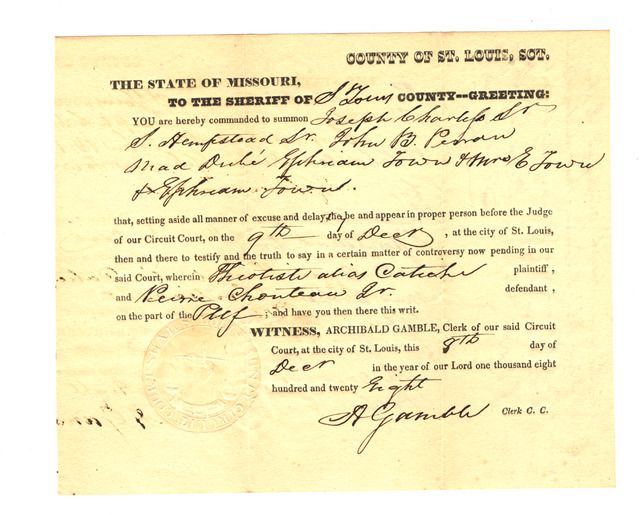 COUNTY OF ST. LOUIS, SCT.
THE STATE OF MISSOURI,
TO THE SHERIFF OF St Louis COUNTY--GREETING:
YOU are hereby commanded to summon Joseph Charless Sr
S. Hempstead Sr. John B.
Mad Duché Ephriam Town & Mrs E Town
& Ephriam Town.
that, setting aside all manner of excuse and delay they be and appear in proper person before the Judge
of our Circuit Court, on the 9th day of Decr, at the city of St. Louis,
then and there to testify and the truth to say in a certain matter of controversy now pending in our
said Court, wherein Theotiste alias Catiche plaintiff,
and Pierre Chouteau Jr. defendant,
on the part of the Pltf; and have you then there this writ.
WITNESS, ARCHIBALD GAMBLE, Clerk of our said Circuit
Court, at the city of St. Louis, this 8th day of
Decr in the year of our Lord one thousand eight
hundred and twenty Eight
A Gamble Clerk C. C.